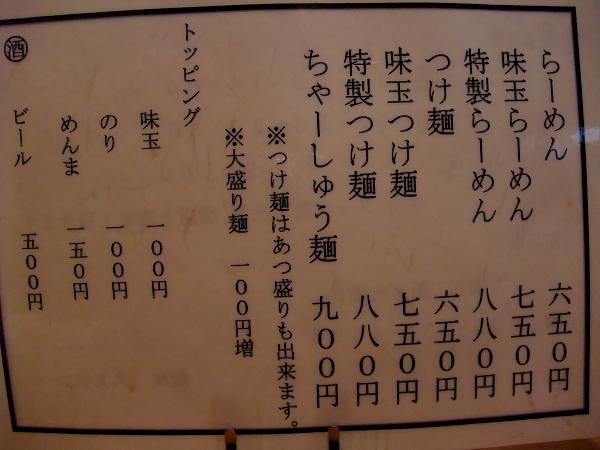 らーめん 六五0円
味玉らーめん 七五0円
特製らーめん 八八0円
つけ麺 六五0円
味玉つけ麺 七五0円
特製つけ麺 八八0円
ちゃーしゅう麺 九00円
※つけ麺はあつ盛りも出来ます。
※大盛り麺 一00円増
トッピング
味玉 一00円
のり 一00円
めんま 一五0円
酒
ビール 五00円